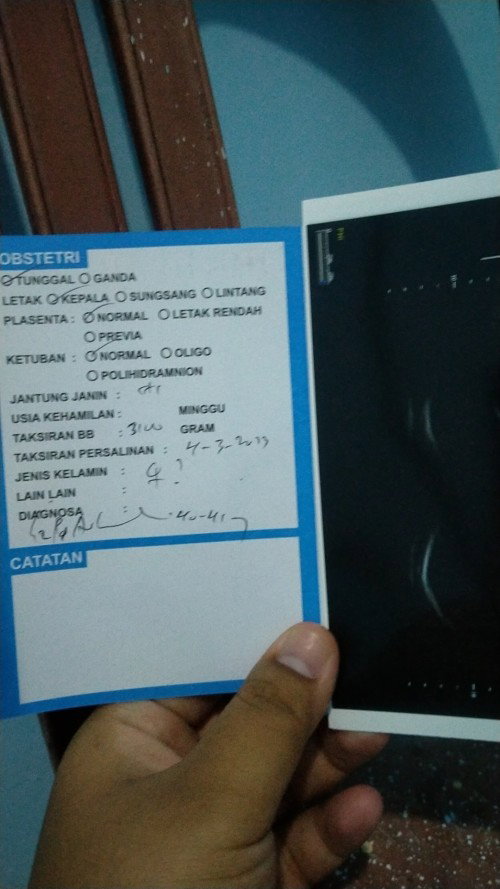 OBSTETRI
TUNGGAL GANDA
LETAK KEPALA SUNGSANG LINTANG
PLASENTA : NORMAL LETAK RENDAH
PREVIA
KETUBAN : NORMAL OLIGO
POLIHIDRAMNION
JANTUNG JANIN :
USIA KEHAMILAN : MINGGU
TAKSIRAN BB : 3100 GRAM
TAKSIRAN PERSALINAN : 4-3-2023
JENIS KELAMIN : ♀ ?
LAIN LAIN :
DIAGNOSA :
40-41
CATATAN